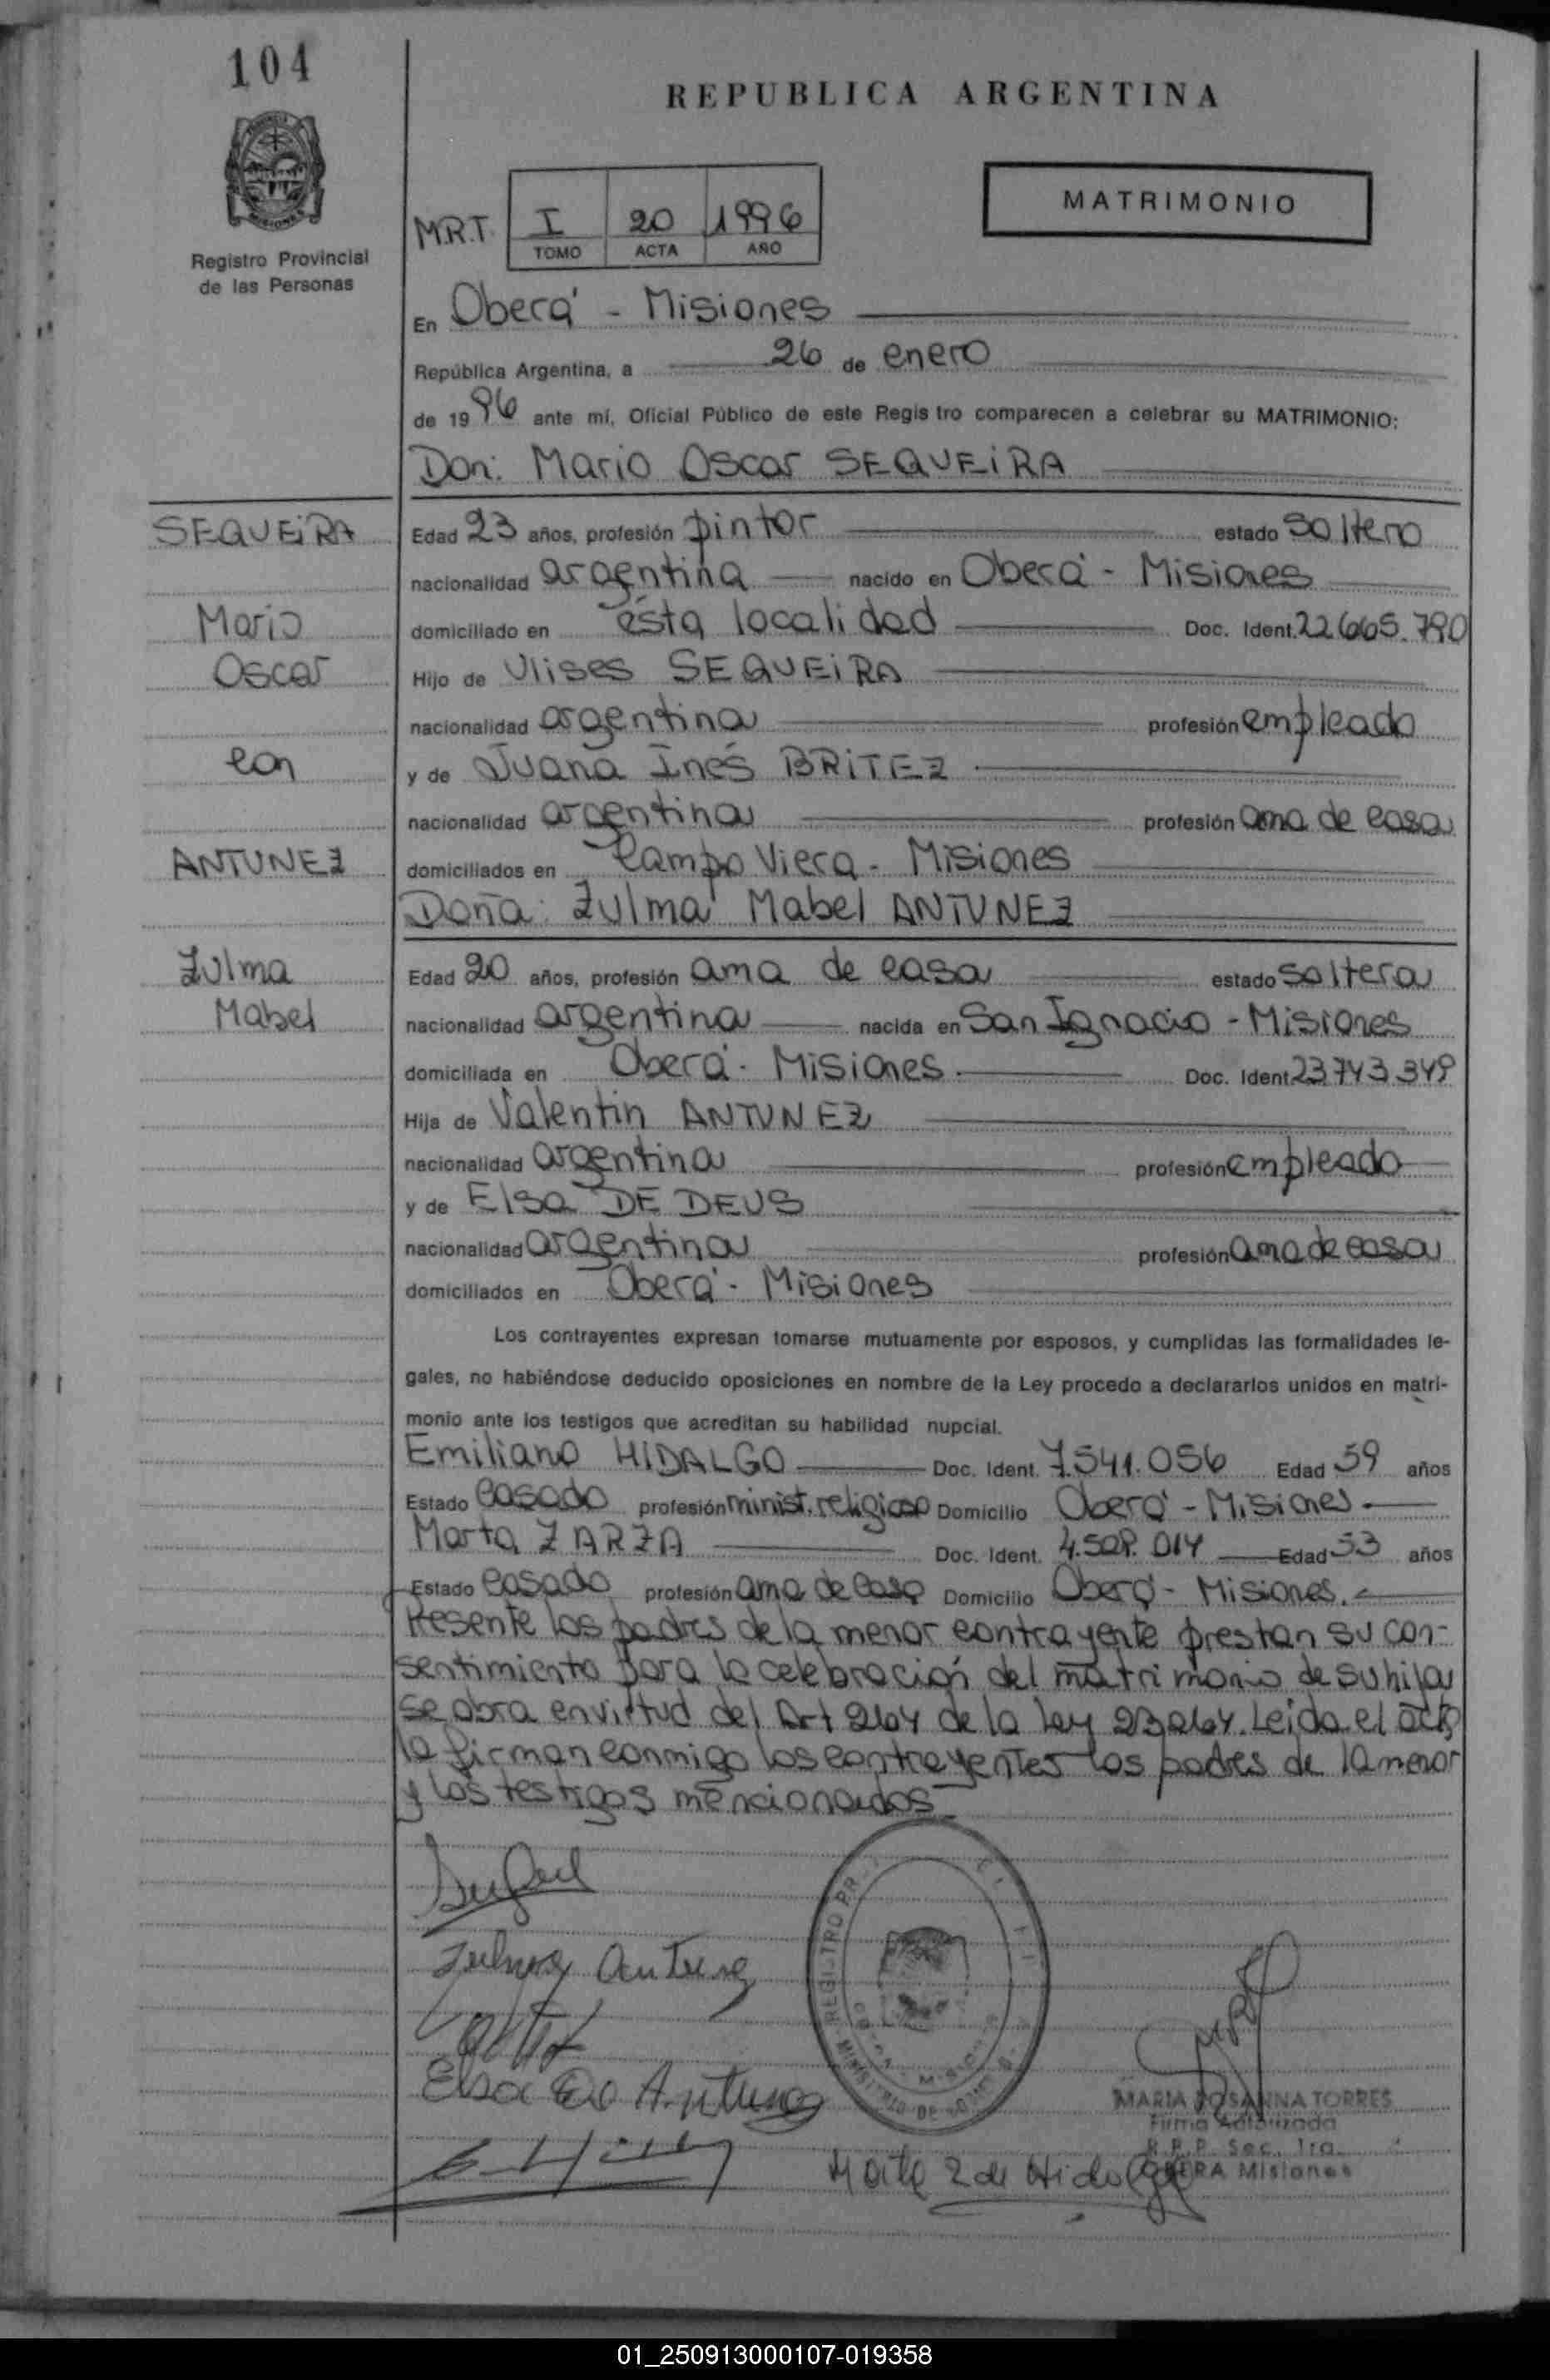 104
REPUBLICA ARGENTINA
MATRIMONIO
Registro Provincial
de las Personas
M.R.T. I 20 1996
TOMO ACTA AÑO
En Oberá - Misiones
República Argentina, a 26 de enero
de 1996 ante mí, Oficial Público de este Regis tro comparecen a celebrar su MATRIMONIO:
Don: Mario Oscar SEQUEiRA
SEQUEiRA
Edad 23 años, profesión pintor estado soltero
nacionalidad argentina nacido en Oberá - Misiones
Mario
domiciliado en ésta localidad Doc. Ident. 22.665.790
Oscar
Hijo de Ulises SEQUEiRA
nacionalidad argentina profesión empleado
con
y de Juana Inés BRiTEZ
nacionalidad argentina profesión ama de casa
ANTUNEZ
domiciliados en Campo Viera - Misiones
Doña: Zulma Mabel ANTUNEZ
Zulma
Edad 20 años, profesión ama de casa estado soltera
Mabel
nacionalidad argentina nacida en San Ignacio - Misiones
domiciliada en Oberá - Misiones. Doc. Ident. 23.743.349
Hija de Valentin ANTUNEZ
nacionalidad argentina profesión empleado
y de Elsa DE DEUS
nacionalidad argentina profesión ama de casa
domiciliados en Oberá - Misiones
Los contrayentes expresan tomarse mutuamente por esposos, y cumplidas las formalidades le-
gales, no habiéndose deducido oposiciones en nombre de la Ley procedo a declararlos unidos en matri-
monio ante los testigos que acreditan su habilidad nupcial.
Emiliano HIDALGO Doc. Ident. 7.541.056 Edad 59 años
Estado casado profesión minist. religioso Domicilio Oberá - Misiones.
Marta ZARZA Doc. Ident. Edad 53 años
Estado casado profesión ama de casa Domicilio Oberá - Misiones.
Presente los padres de la menor contrayente prestan su con-
sentimiento para la celebración del matrimonio de su hija
se obra en virtud del Art 264 de la ley 23264. Leida el acta
la firman conmigo los contrayentes los padres de la menor
y los testigos mencionados
Zulma Antunez
Elsa de Antunez
MARIA ROSANNA TORRES
Firma Autorizada
R.P.P. Sec. 1ra.
OBERA Misiones
Marta Z de Hidalgo
01_250913000107-019358